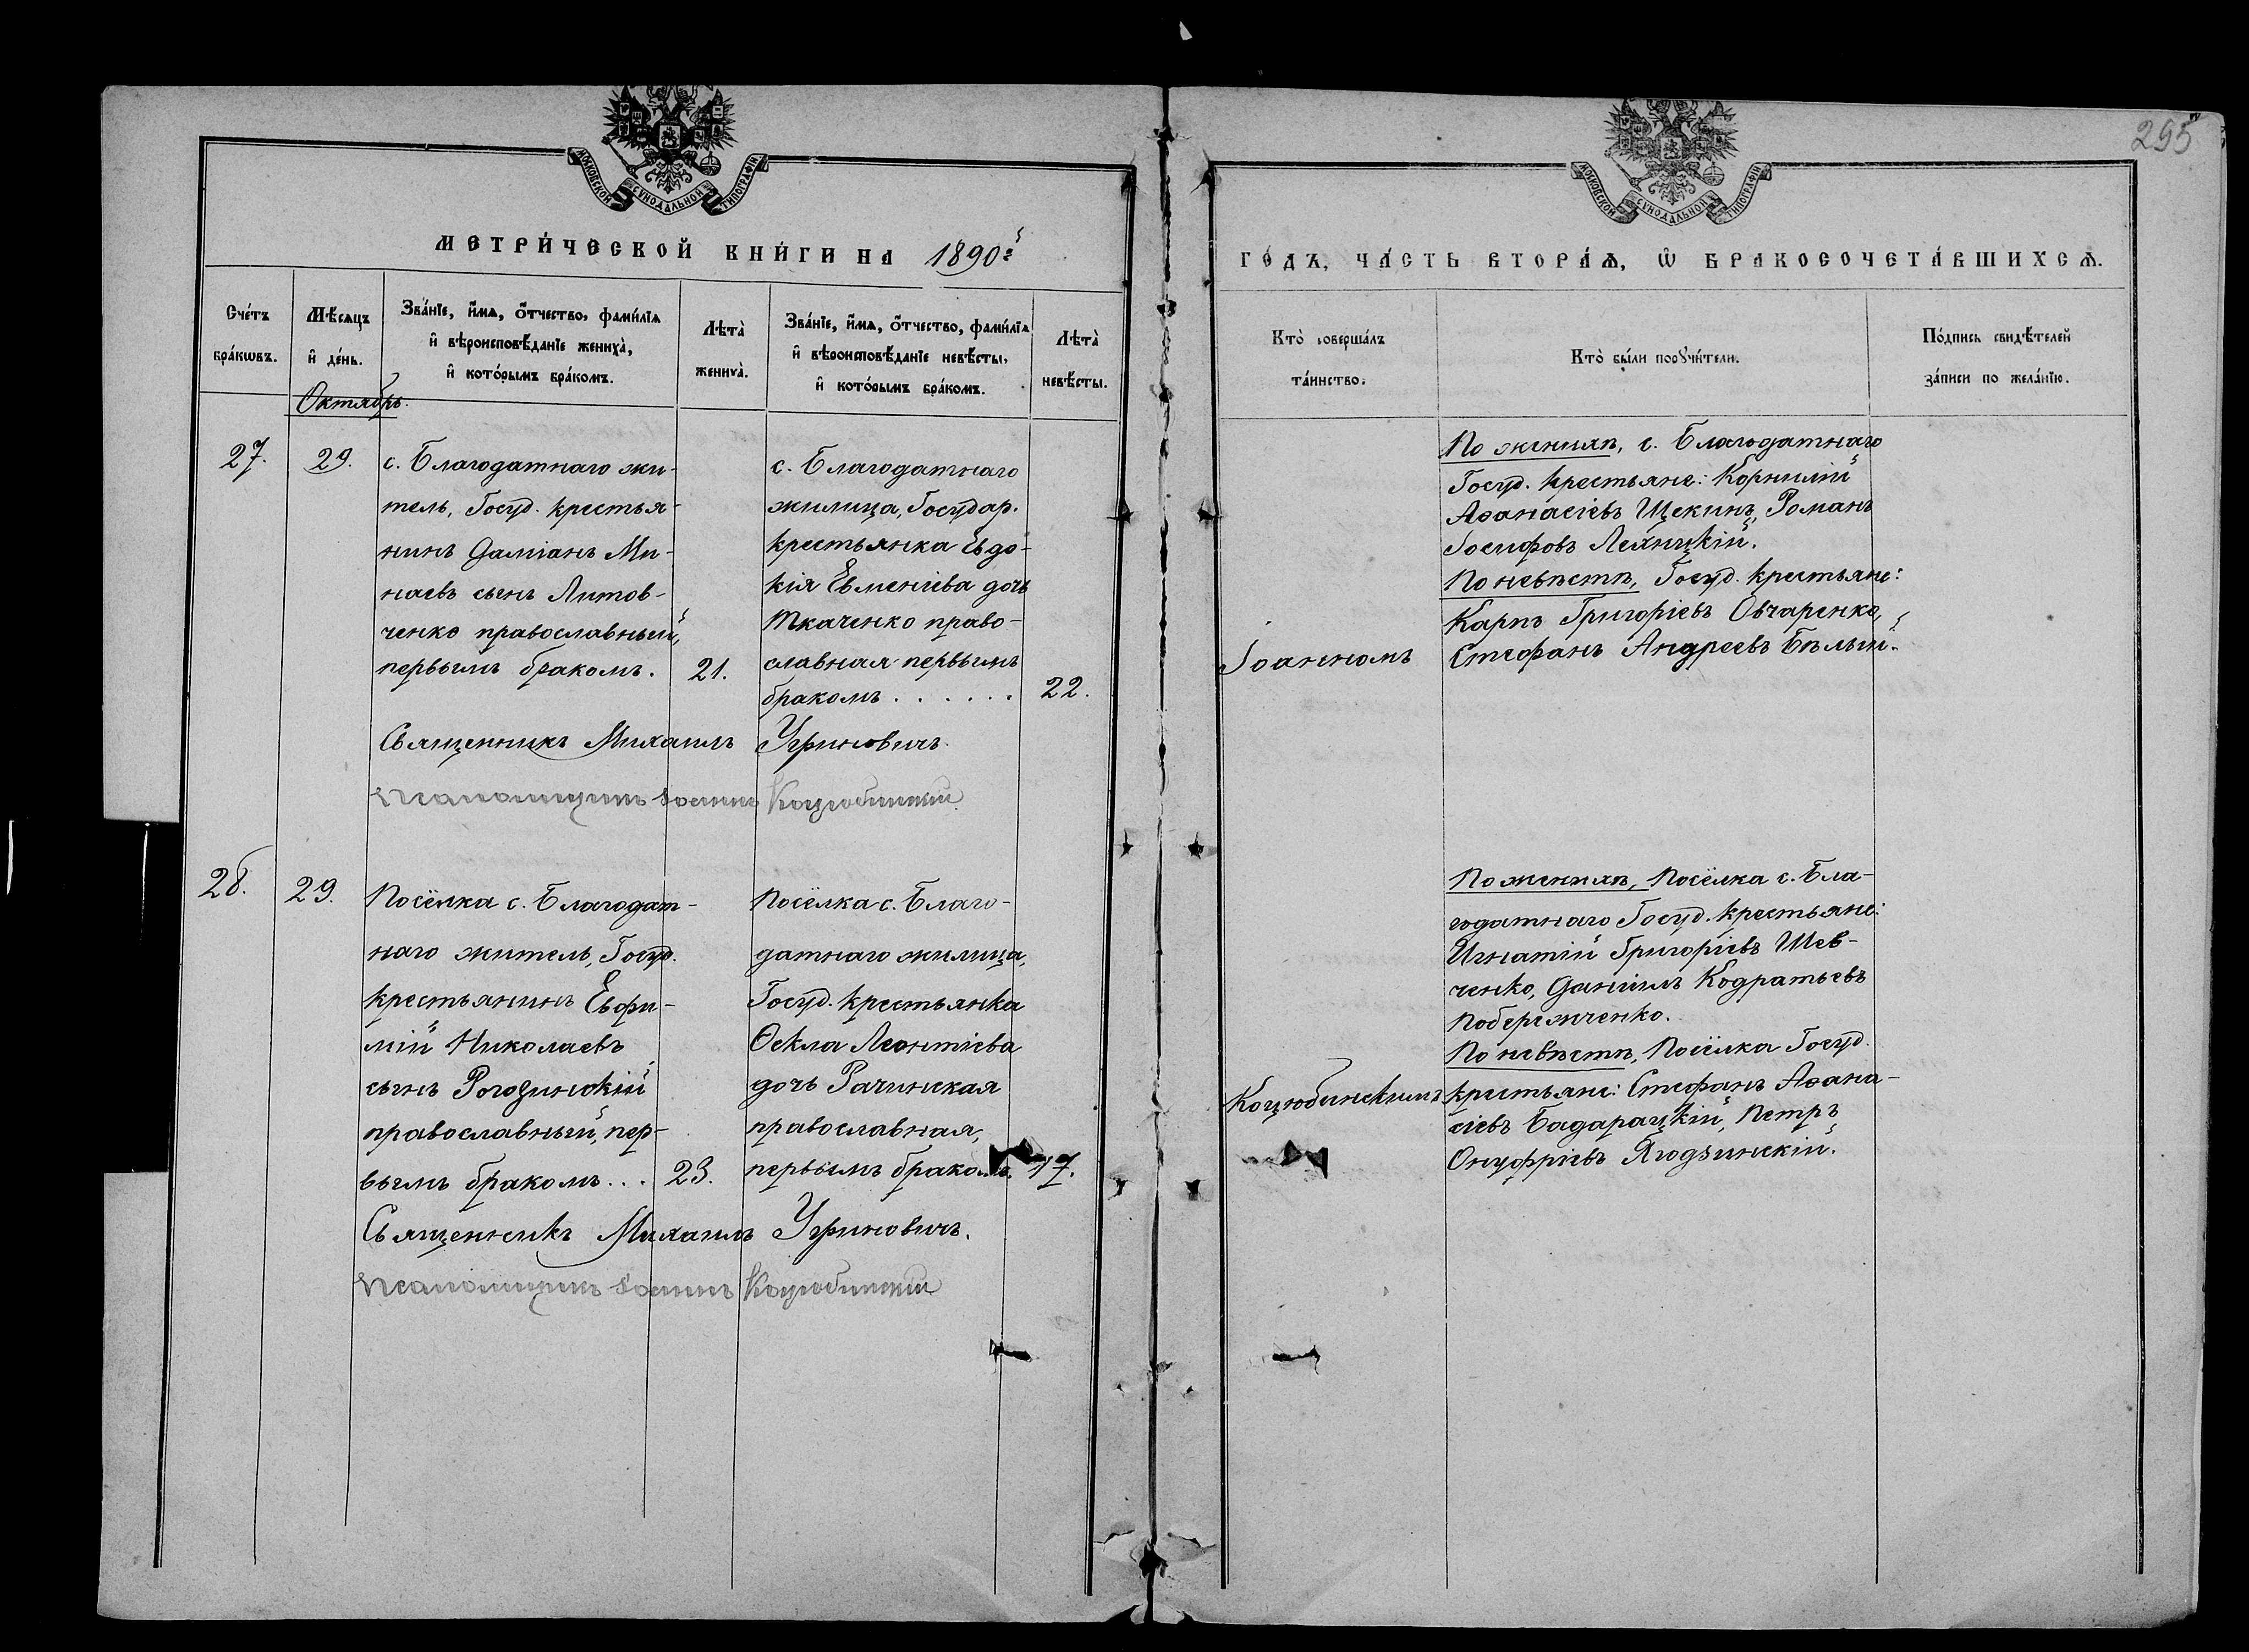 295
МОСКОВСКОЙ СѴНОДАЛЬНОЙ ТИПОГРАФІИ
МОСКОВСКОЙ СѴНОДАЛЬНОЙ ТИПОГРАФІИ
МЕТРИ́ЧЕСКОЙ КНИ́ГИ НА 1890й
ГО́ДЪ, ЧА́СТЬ ВТОРА́Ѧ, Ѡ БРАКОСОЧЕТА́ВШИХСѦ.
Сче́тъ
бра́кѡвъ.
Мѣ́сѧцъ
и де́нь.
Зва́нїе, и́мѧ, о́тчество, фами́лїѧ
и вѣроисповѣ́данїе жениха̀,
и кото́рымъ бра́комъ.
Лѣта̀
жениха̀.
Зва́нїе, и́мѧ, о́тчество, фами́лїѧ
и вѣроисповѣ́данїе невѣ́сты,
и кото́рымъ бра́комъ.
Лѣта̀
невѣ́сты.
Кто̀ соверша́лъ
та́инство.
Кто̀ бы́ли порꙋчи́тели.
По́дпись свидѣ́телей
за́писи по жела́нїю.
Октябрь.
27.
29.
с. Благодатнаго жи-
тель, Госуд. крестья-
нинъ Даміанъ Ми-
наевъ сынъ Литов-
ченко православный,
первымъ бракомъ.
21.
с. Благодатнаго
жилица, Государ.
крестьянка Евдо-
кія Евменіева дочь
Ткаченко право-
славная первымъ
бракомъ . . . . . .
22.
Іоанномъ
По женихѣ, с. Благодатнаго
Госуд. крестьяне: Корнилій
Аѳанасіевъ Щекинъ, Романъ
Іосифовъ
По невѣстѣ, Госуд. крестьяне:
Карпъ Григоріевъ Овчаренко,
Стефанъ Андреевъ Бѣлый.
Священникъ Михаилъ Угриновичъ.
Псаломщикъ Іоаннъ Коцюбинскій.
28.
29.
Посёлка с. Благодат-
наго житель, Госуд.
крестьянинъ Евфи-
мій Николаевъ
сынъ Рогозинскій
православный, пер-
вымъ бракомъ . . .
23.
Посёлка с. Благо-
датнаго жилица,
Госуд. крестьянка
Ѳекла Леонтіева
дочь Рачинская
православная,
первымъ бракомъ.
17.
Коцюбинскимъ
По женихѣ, Посёлка с. Бла-
годатнаго Госуд. крестьяне:
Игнатій Григоріевъ Шев-
ченко, Даніилъ Кодратьевъ
Побережченко.
По невѣстѣ, Посёлка Госуд.
крестьяне: Стефанъ Аѳана-
сіевъ Бадарацкій, Петръ
Онуфріевъ Ягодзинскій.
Священникъ Михаилъ Угриновичъ.
Псаломщикъ Іоаннъ Коцюбинскій